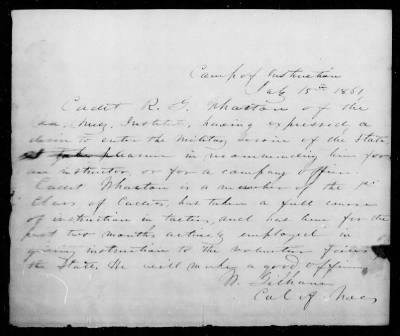 Camp of Instruction
July 15th 1861
Cadet R. G. Wharton of the
Va. Mily. Institute, having expressed a
desire to enter the Military service of the State,
I take pleasure in recommending him for
an instructor, or for a company officer.
Cadet Wharton is a member of the 1st
Class of Cadets, has taken a full course
of instruction in tactics, and has been for the
past two months actively employed in
giving instruction to the volunteer forces
the State. He will make a good officer
W. Gilham
Col